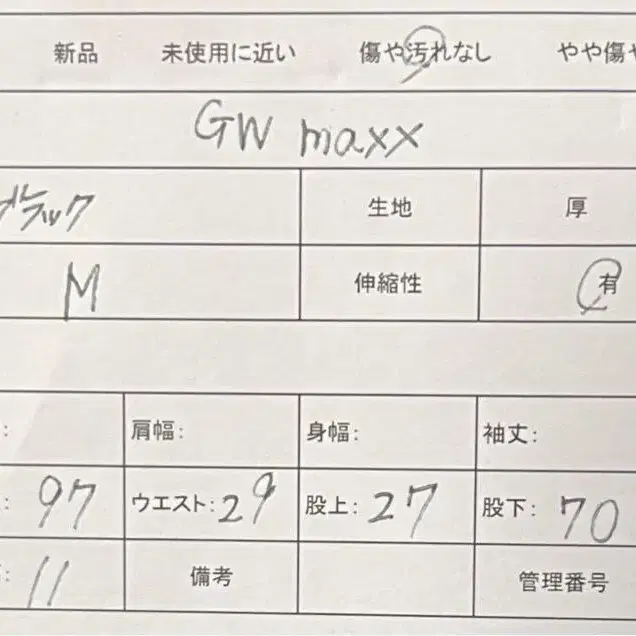 新品 未使用に近い 傷や汚れなし やや傷や
GW maxx
ブラック 生地 厚
M 伸縮性 有
: 肩幅: 身幅: 袖丈:
: 97 ウエスト: 29 股上: 27 股下: 70
: 11 備考 管理番号